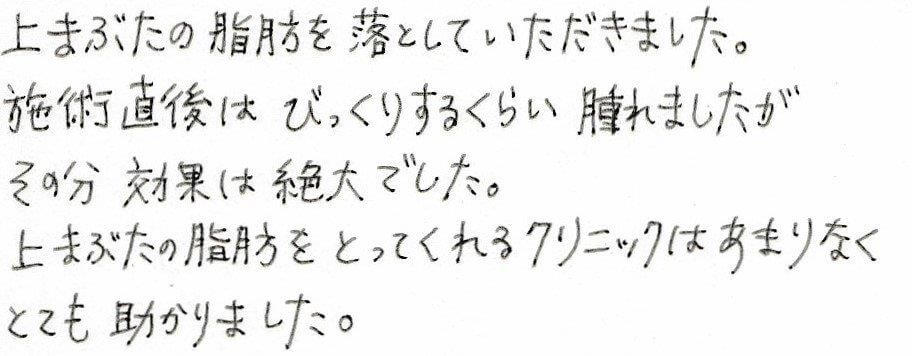 上まぶたの脂肪を落としていただきました。
施術直後は びっくりするくらい 腫れましたが
その分 効果は絶大でした。
上まぶたの脂肪をとってくれるクリニックはあまりなく
とても 助かりました。